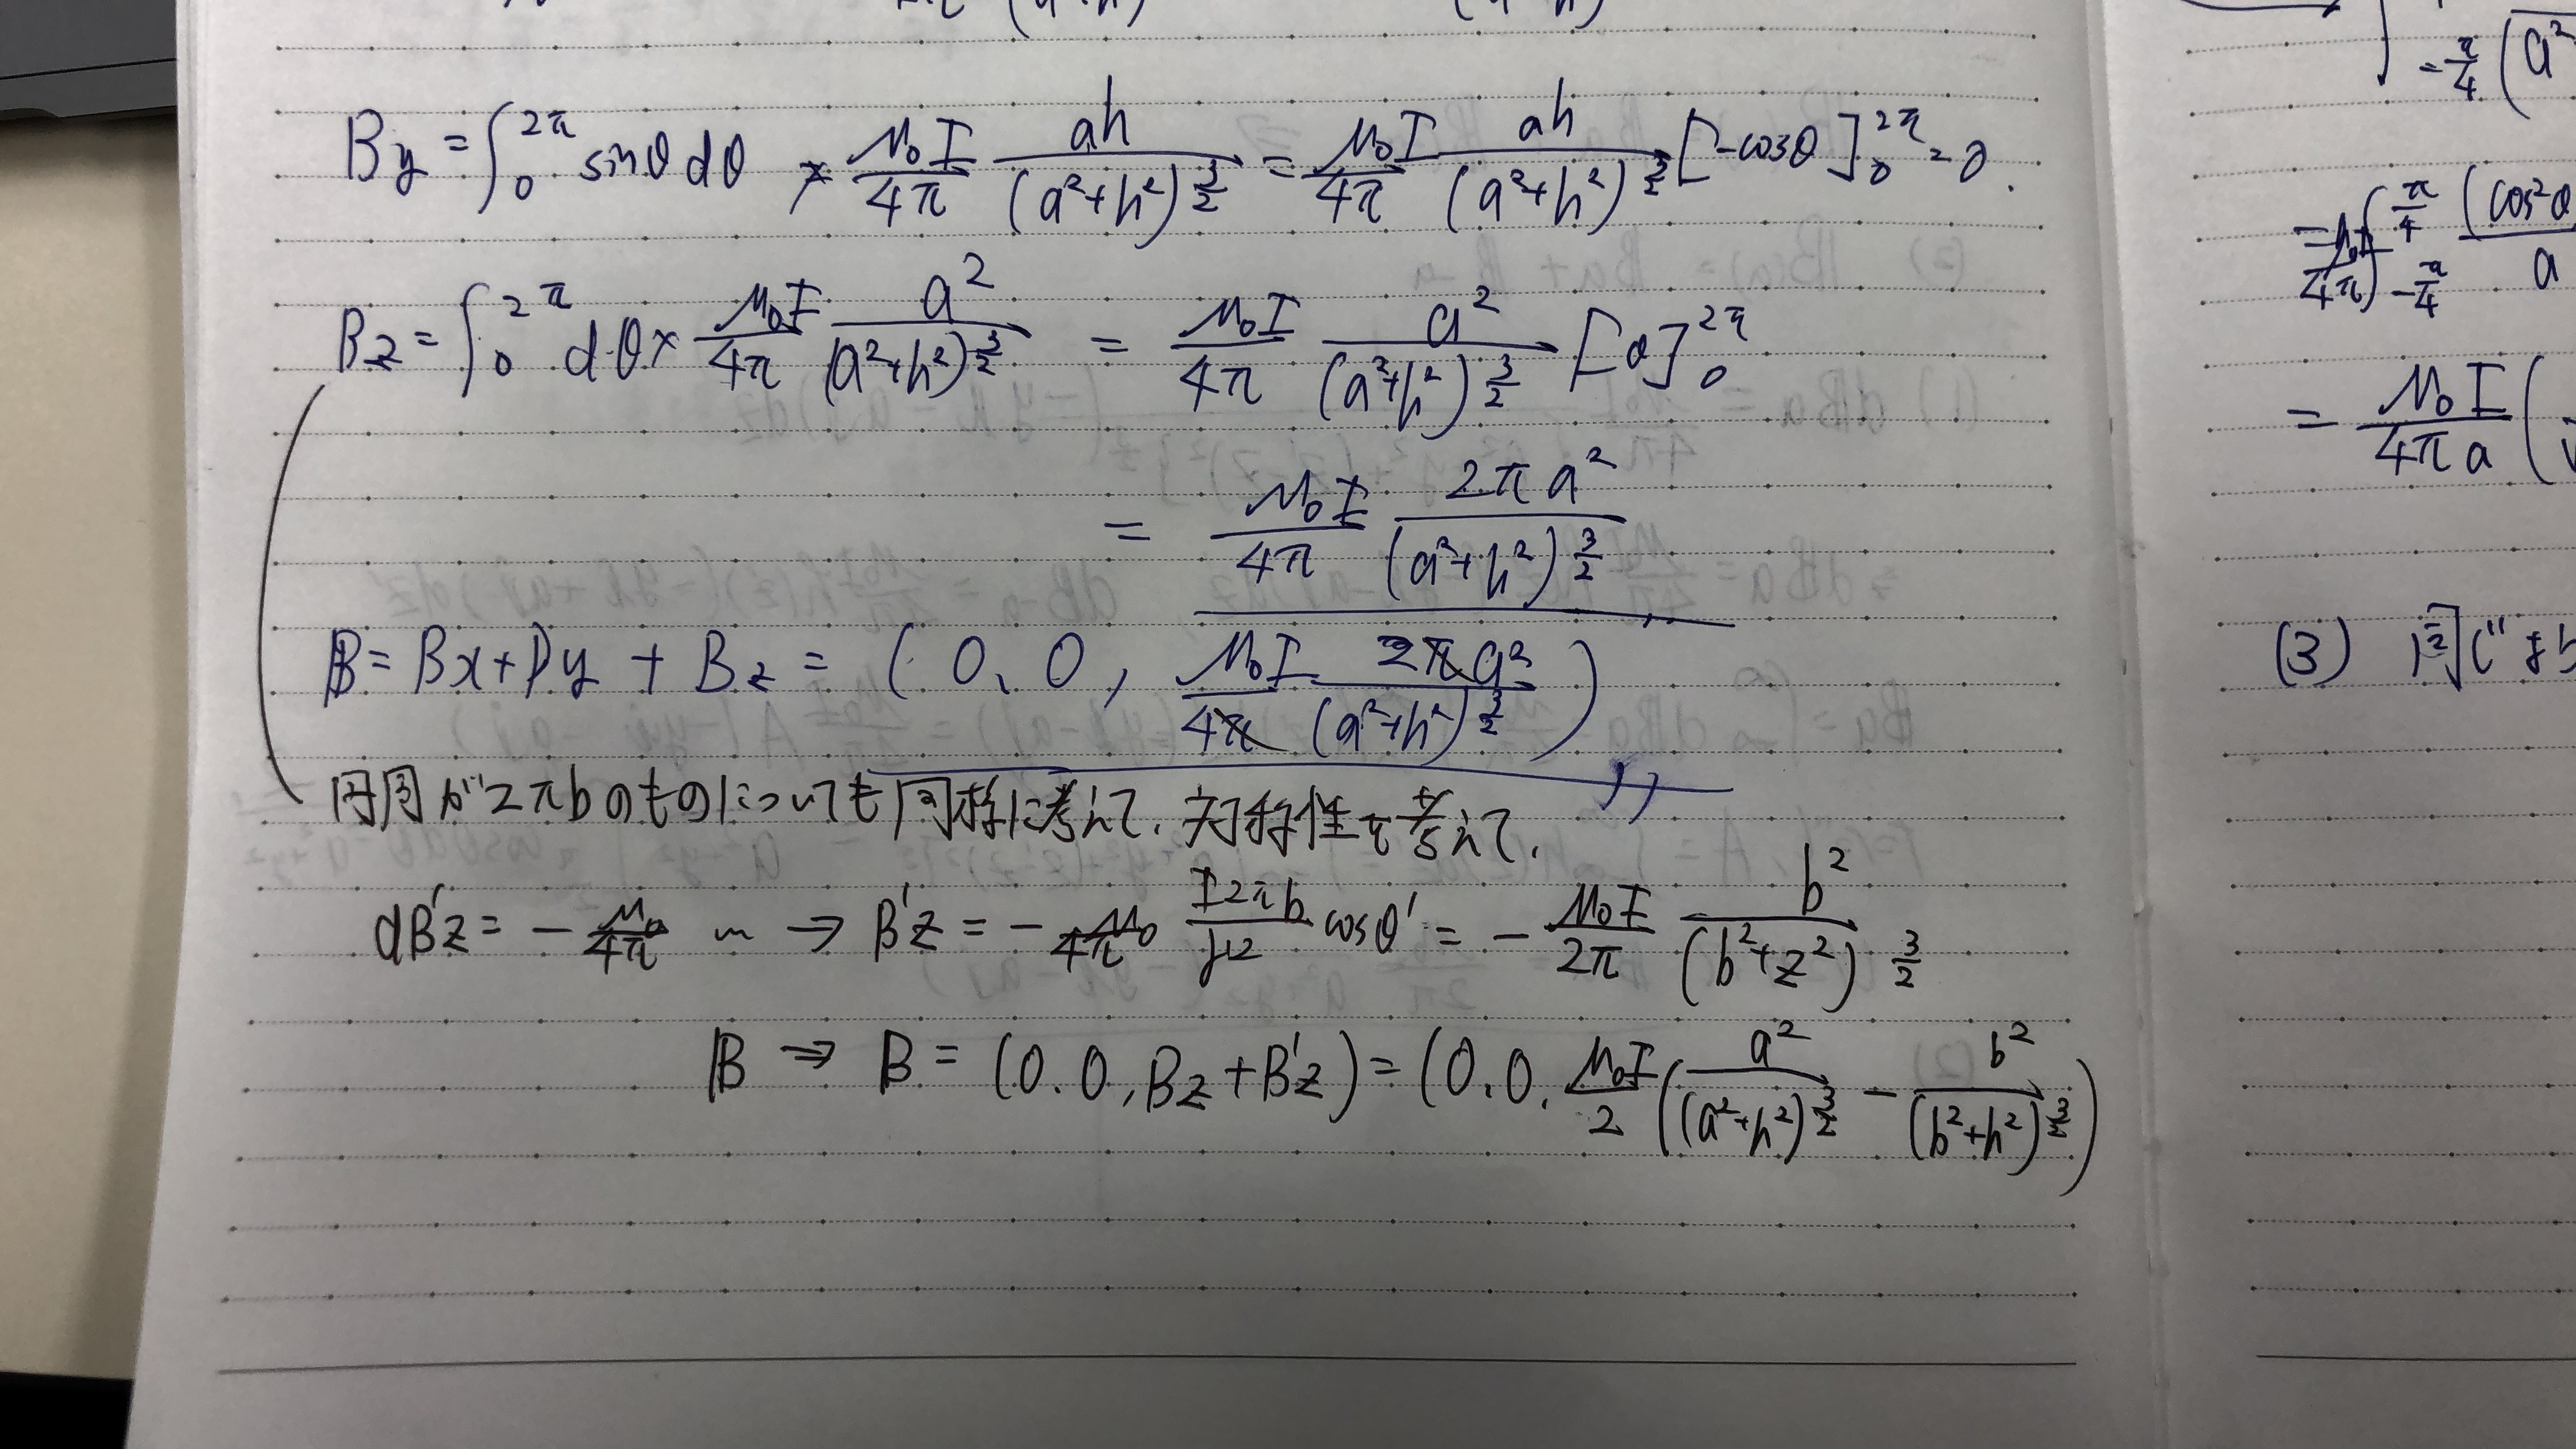 By = ∫₀^{2π} sinθ dθ × μ₀I/4π ah/(a²+h²)^{3/2} = μ₀I/4π ah/(a²+h²)^{3/2} [-cosθ]₀^{2π} = 0.
Bz = ∫₀^{2π} dθ × μ₀I/4π a²/(a²+h²)^{3/2} = μ₀I/4π a²/(a²+h²)^{3/2} [θ]₀^{2π}
= μ₀I/4π 2πa²/(a²+h²)^{3/2}
𝔹 = Bx + By + Bz = (0, 0, μ₀I/4π 2πa²/(a²+h²)^{3/2})
円周が2πbのものについても同様に考えて、対称性を考えて、
dB'z = - μ₀/4π 〜 → B'z = - μ₀/4π I2πb/r'² cosθ' = - μ₀I/2π b²/(b²+z²)^{3/2}
𝔹 ⇒ B = (0, 0, Bz + B'z) = (0, 0, μ₀I/2 (a²/(a²+h²)^{3/2} - b²/(b²+h²)^{3/2})
= μ₀I/4πa (
(3) 同じ